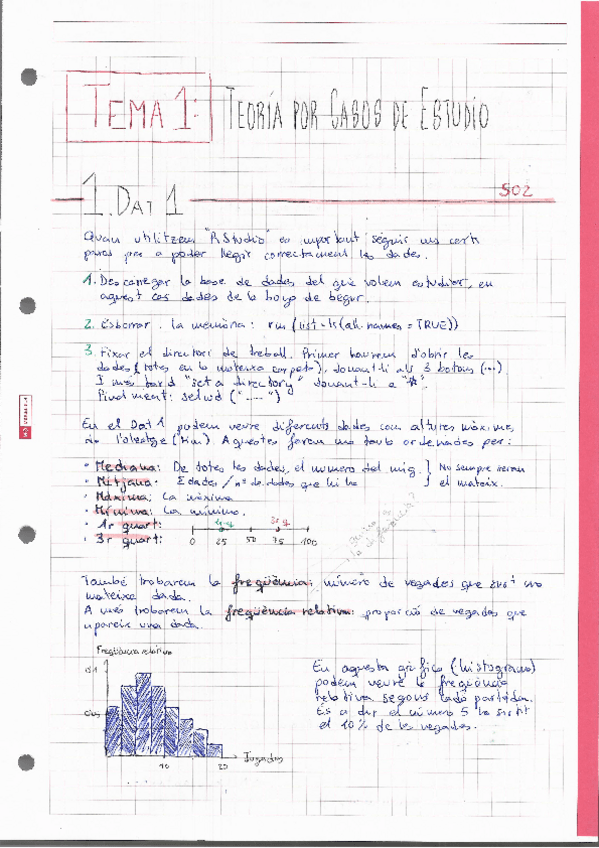 TEMA 1: TEORÍA POR CASOS DE ESTUDIO
1. DAT 1
S02
Quan utilitzem "RStudio" es important seguir uns certs
passos per a poder llegir correctament les dades.
1. Descarregar la base de dades del què volem estudiar, en
aquest cas dades de la boya de begur.
2. Esborrar la memòria: rm (list=ls(all.names = TRUE))
3. Fixar el directori de treball. Primer haurem d'obrir les
dades (totes en la mateixa carpeta), donant-li als 3 botons (...)
I més tard "set a directory" donant-li a
Finalment: setwd ("......")
En el Dat 1 podem veure diferents dades com altures màximes
o l'oleatge (Hm). Aquestes formen una taula ordenades per:
• Mediana: De totes les dades, el número del mig.
• Mitjana: Σ dades / nº de dades que hi ha
No sempre seran
el mateix.
• Màxima: La màxima
• Mínima: La mínima.
• 1r quart:
• 3r quart:
1r q 3r q
0 25 50 75 100
També trobarem la freqüència: número de vegades que ix una
mateixa dada.
A més trobarem la freqüència relativa: proporció de vegades que
apareix una dada.
Freqüència relativa
0'1
10 20
En aquesta gràfica (histograma)
podem veure la freqüència
relativa segons cada partida.
És a dir el número 5 ha sortit
el 10% de les vegades.